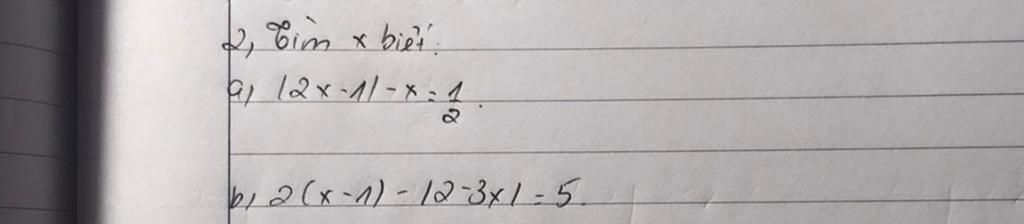 2, Tìm x biết:
a) |2x-1| - x = 1/2.
b) 2(x-1) - |2-3x| = 5.